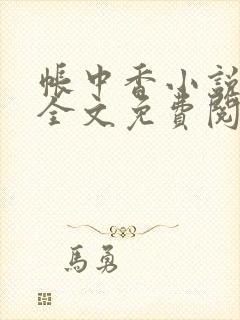 帳中香小說
全文免費閱
馬勇